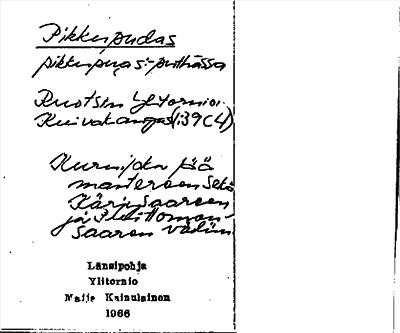 Pikkupudas
pikkupuđas:-puthássa
Ruotsin Ylitornio.
Kuivakangas (:39C4)
Kurnijoka jää
mantereen sekä
Kärjusaareen
ja
saaren väliin
Länsipohja
Ylitornio
Maija Kainulainen
1966